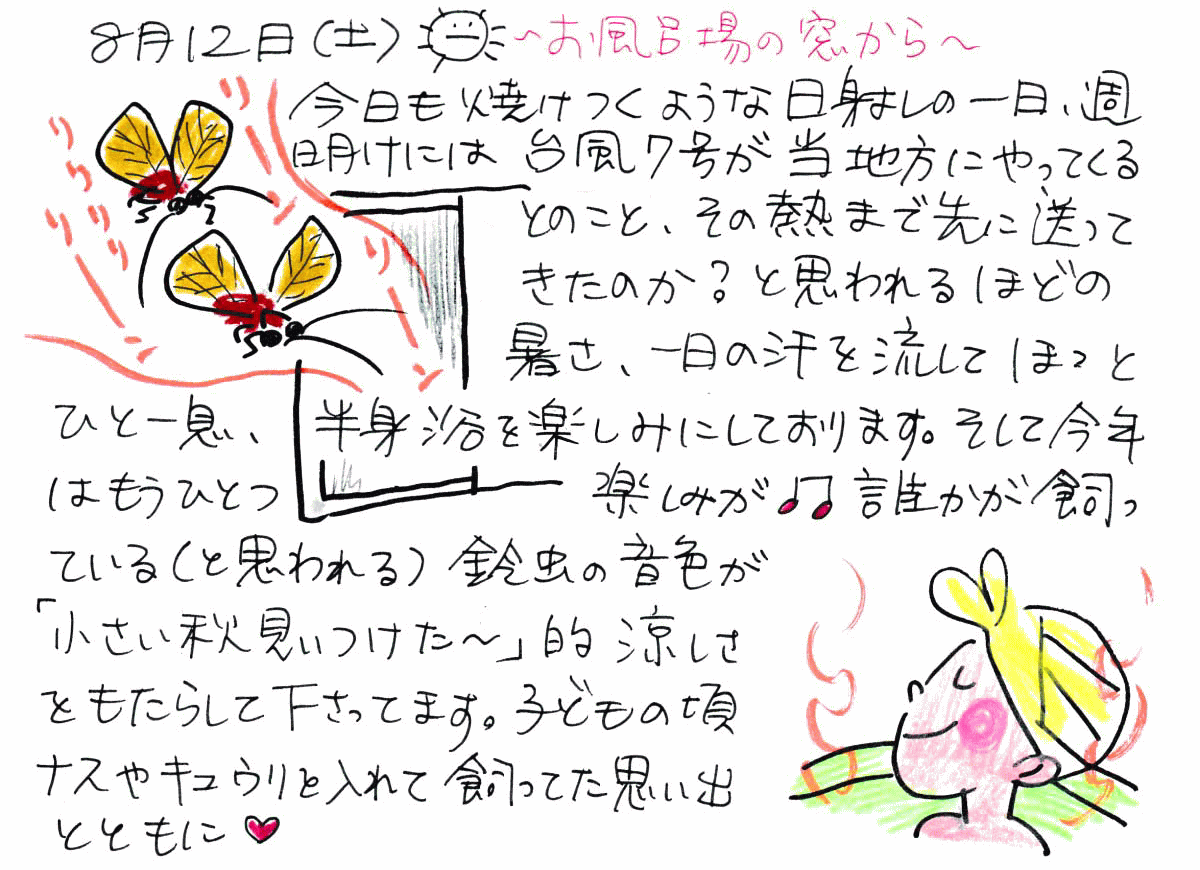 8月12日(土) ~お風呂場の窓から~
今日も焼けつくような日射ましの一日、週
明けには台風7号が当地方にやってくる
とのこと、その熱まで先に送って
きたのか?と思われるほどの
暑さ、一日の汗を流してほっと
ひと一息、半身浴を楽しみにしております。そして今年
はもうひとつ楽しみが♫誰かが飼っ
ている(と思われる)鈴虫の音色が
「小さい秋見いつけた~」的涼しさ
をもたらして下さってます。子どもの頃
ナスやキュウリを入れて飼ってた思い出
とともに♥
リリリリーン
リリリリーン